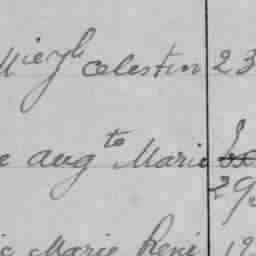 Miezh Celestin 23
e aug^te Marie
29
ic Marie René 19